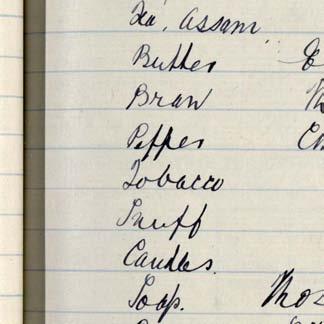 Tea, Assam
Butter
Bran
Pepper
Tobacco
Snuff
Candles.
Soap.